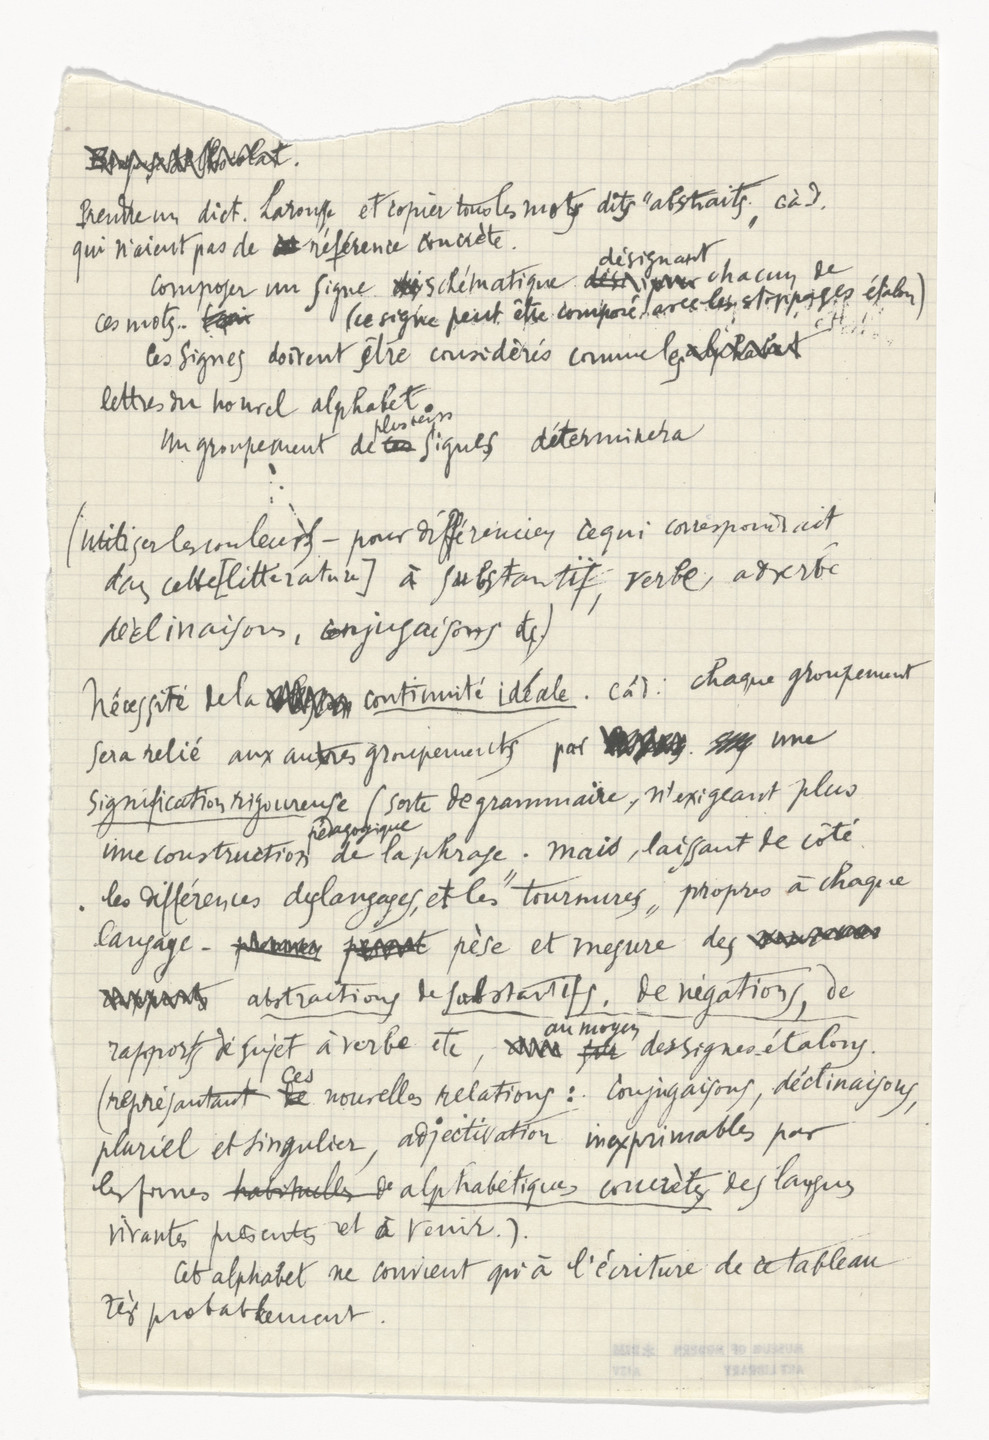 Prendre un dict. Larousse et copier tous les mots dits "abstraits", càd.
qui n'aient pas de référence concrète.
Composer un signe schématique désignant chacun de
ces mots. (ce signe peut être composé avec les stoppages étalon)
Ces signes doivent être considérés comme les
lettres du nouvel alphabet.
Un groupement de plusieurs signes déterminera
(Utiliser les couleurs – pour différencier ce qui correspondrait
dans cette [littérature] à substantif, verbe, adverbe
déclinaisons, conjugaisons etc)
Nécessité de la continuité idéale. càd: chaque groupement
sera relié aux autres groupements par une
signification rigoureuse (sorte de grammaire, n'exigeant plus
une construction pédagogique de la phrase. mais, laissant de côté
les différences des langages, et les "tournures" propres à chaque
langage - pèse et mesure des
abstractions de substantifs, de négations, de
rapports de sujet à verbe etc, au moyen des signes-étalons.
(représentant ces nouvelles relations: conjugaisons, déclinaisons,
pluriel et singulier, adjectivation inexprimables par
les formes habituelles de alphabétiques concrètes des langues
vivantes présentes et à venir.).
Cet alphabet ne convient qu'à l'écriture de ce tableau
très probablement.